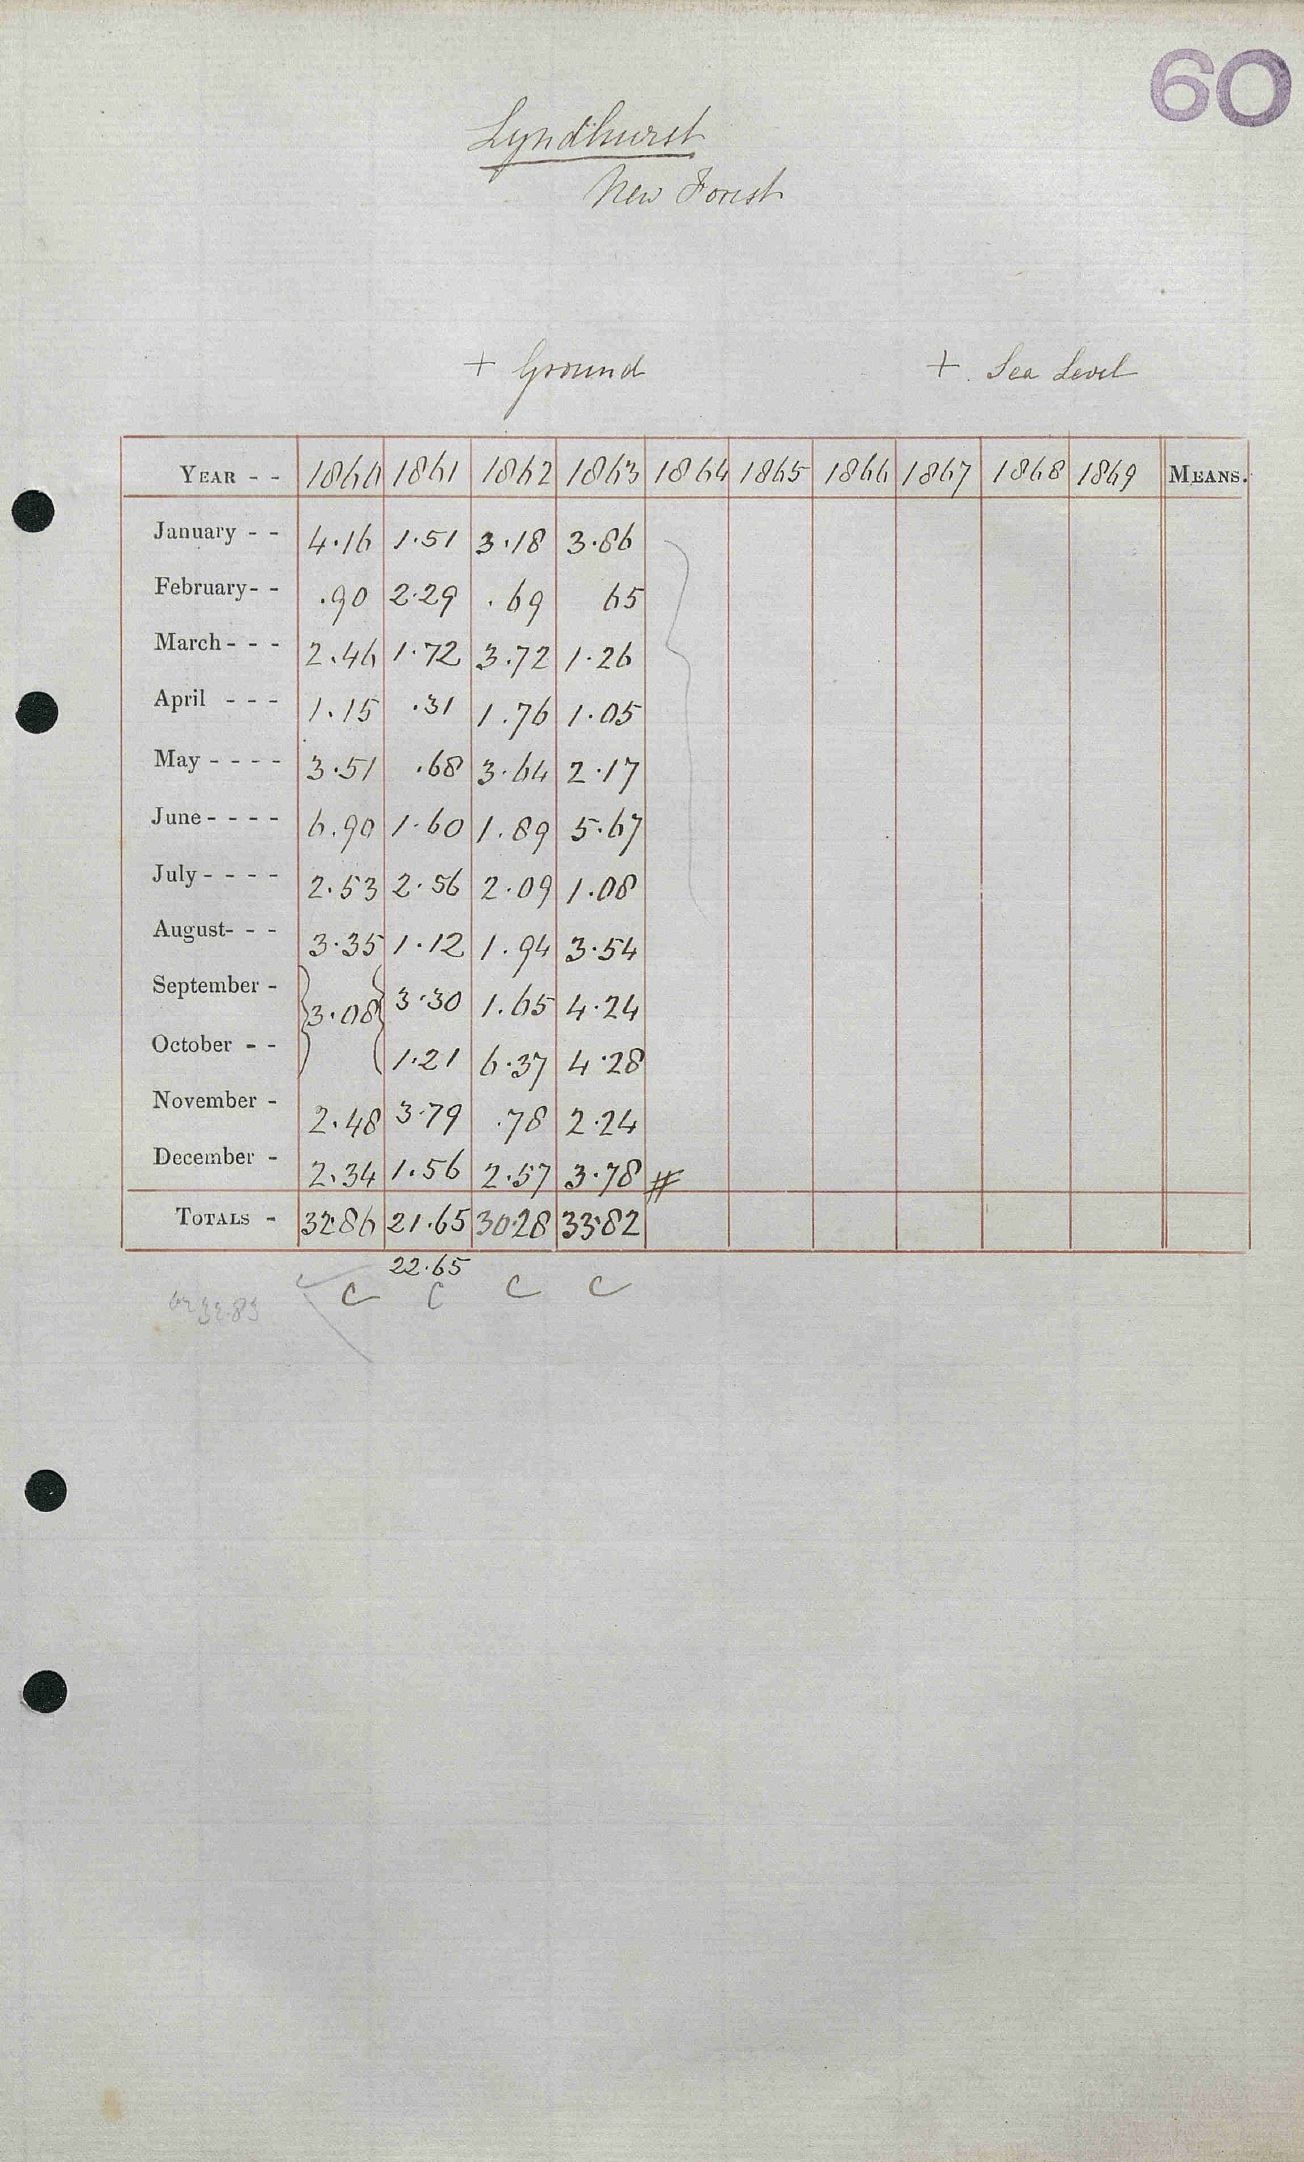 60
Lyndhurst
New Forest
+ Ground + Sea Level
YEAR - - 1860 1861 1862 1863 1864 1865 1866 1867 1868 1869 MEANS.
January - - 4.16 1.51 3.18 3.86
February - - .90 2.29 .69 65
March - - - 2.46 1.72 3.72 1.26
April - - - 1.15 .31 1.76 1.05
May - - - - 3.51 .68 3.64 2.17
June - - - - 6.90 1.60 1.89 5.67
July - - - - 2.53 2.56 2.09 1.08
August - - - 3.35 1.12 1.94 3.54
September - 3.08 3.30 1.65 4.24
October - - 1.21 6.37 4.28
November - 2.48 3.79 .78 2.24
December - 2.34 1.56 2.57 3.78 #
TOTALS - 32.86 21.65 30.28 33.82
22.65
C C C C
32.83